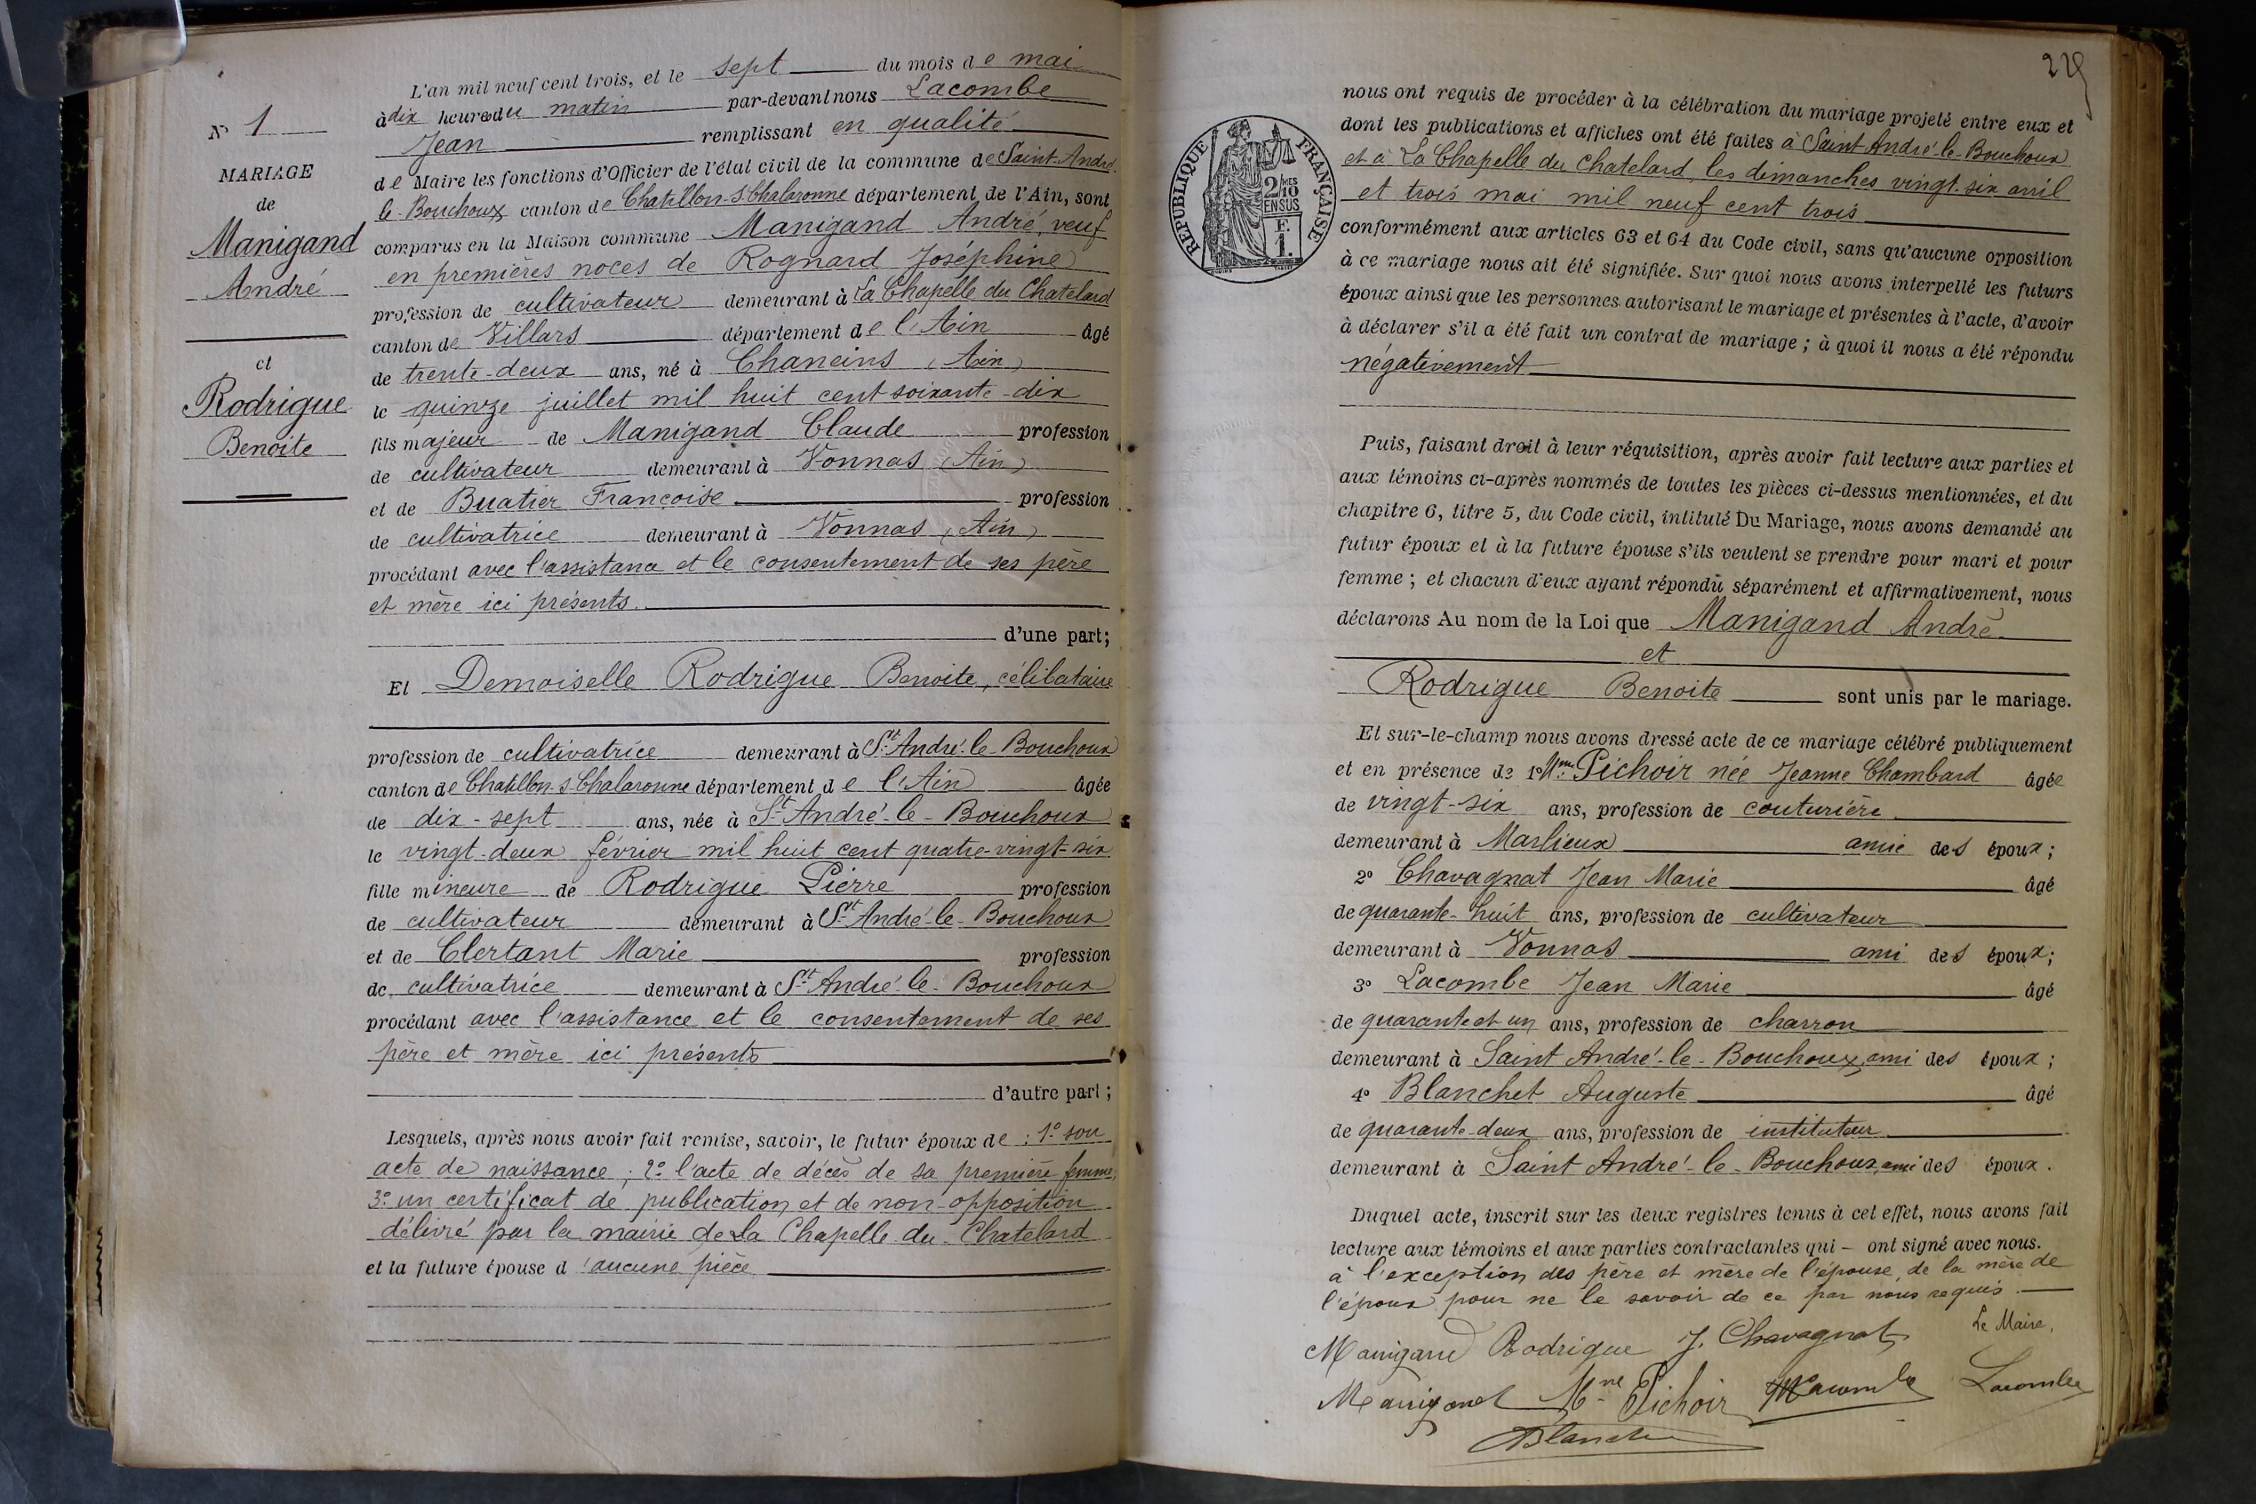 N° 1
MARIAGE
de
Manigand
André
et
Rodrigue
Benoite
L'an mil neuf cent trois, et le sept du mois de mai
à dix heures du matin par-devant nous Lacombe
Jean remplissant en qualité
de Maire les fonctions d'Officier de l'état civil de la commune de Saint-André
le-Bouchoux canton de Chatillon-s-Chalaronne département de l'Ain, sont
comparus en la Maison commune Manigand André, veuf
en premières noces de Rognard Joséphine
profession de cultivateur demeurant à La Chapelle du Chatelard
canton de Villars département de l'Ain âgé
de trente-deux ans, né à Chaneins (Ain)
le quinze juillet mil huit cent soixante-dix
fils majeur de Manigand Claude profession
de cultivateur demeurant à Vonnas (Ain)
et de Buatier Françoise profession
de cultivatrice demeurant à Vonnas (Ain)
procédant avec l'assistance et le consentement de ses père
et mère ici présents.
d'une part;
Et Demoiselle Rodrigue Benoite, célibataire
profession de cultivatrice demeurant à St-André-le-Bouchoux
canton de Chatillon-s-Chalaronne département de l'Ain âgée
de dix-sept ans, née à St-André-le-Bouchoux
le vingt-deux février mil huit cent quatre-vingt-six
fille mineure de Rodrigue Pierre profession
de cultivateur demeurant à St-André-le-Bouchoux
et de Clertant Marie profession
de cultivatrice demeurant à St-André-le-Bouchoux
procédant avec l'assistance et le consentement de ses
père et mère ici présents
d'autre part;
Lesquels, après nous avoir fait remise, savoir, le futur époux de : 1° son
acte de naissance; 2° l'acte de décès de sa première femme,
3° un certificat de publication et de non-opposition
délivré par la mairie de La Chapelle-du-Chatelard
et la future épouse d'aucune pièce
225
RÉPUBLIQUE FRANÇAISE
2/10 MES
EN SUS
F.
1.
nous ont requis de procéder à la célébration du mariage projeté entre eux et
dont les publications et affiches ont été faites à Saint-André-le-Bouchoux
et à La Chapelle du Chatelard, les dimanches vingt-six avril
et trois mai mil neuf cent trois
conformément aux articles 63 et 64 du Code civil, sans qu'aucune opposition
à ce mariage nous ait été signifiée. Sur quoi nous avons interpellé les futurs
époux ainsi que les personnes autorisant le mariage et présentes à l'acte, d'avoir
à déclarer s'il a été fait un contrat de mariage; à quoi il nous a été répondu
négativement
Puis, faisant droit à leur réquisition, après avoir fait lecture aux parties et
aux témoins ci-après nommés de toutes les pièces ci-dessus mentionnées, et du
chapitre 6, titre 5, du Code civil, intitulé Du Mariage, nous avons demandé au
futur époux et à la future épouse s'ils veulent se prendre pour mari et pour
femme; et chacun d'eux ayant répondu séparément et affirmativement, nous
déclarons Au nom de la Loi que Manigand André
et
Rodrigue Benoite sont unis par le mariage.
Et sur-le-champ nous avons dressé acte de ce mariage célébré publiquement
et en présence de 1° Mme Pichoir née Jeanne Chambard âgée
de vingt-six ans, profession de couturière
demeurant à Marlieux amie des époux;
2° Chavagnat Jean Marie âgé
de quarante-huit ans, profession de cultivateur
demeurant à Vonnas ami des époux;
3° Lacombe Jean Marie âgé
de quarante et un ans, profession de charron
demeurant à Saint André-le-Bouchoux, ami des époux;
4° Blanchet Auguste âgé
de quarante-deux ans, profession de instituteur
demeurant à Saint André-le-Bouchoux, ami des époux.
Duquel acte, inscrit sur les deux registres tenus à cet effet, nous avons fait
lecture aux témoins et aux parties contractantes qui - ont signé avec nous.
à l'exception des père et mère de l'épouse, de la mère de
l'époux pour ne le savoir de ce par nous requis.
Le Maire,
Manigand Rodrigue J. Chavagnat
Manigand Mme Pichoir Lacombe Lacombe
Blanchet